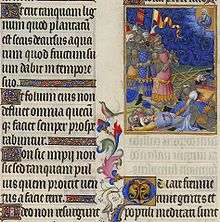 tanquam lig
num quod plantatum
est secus decursus aqua
rum quod fructum su
um dabit in tempore
suo.
Et folium eius non
defluet omnia quecu
q; faciet semper prospe
rabuntur.
Non sic impij non
sic sed tanquam pul
uis quem proicit ven
tus a facie terre.
non resurgunt
fremue
gentes et
populi meditati